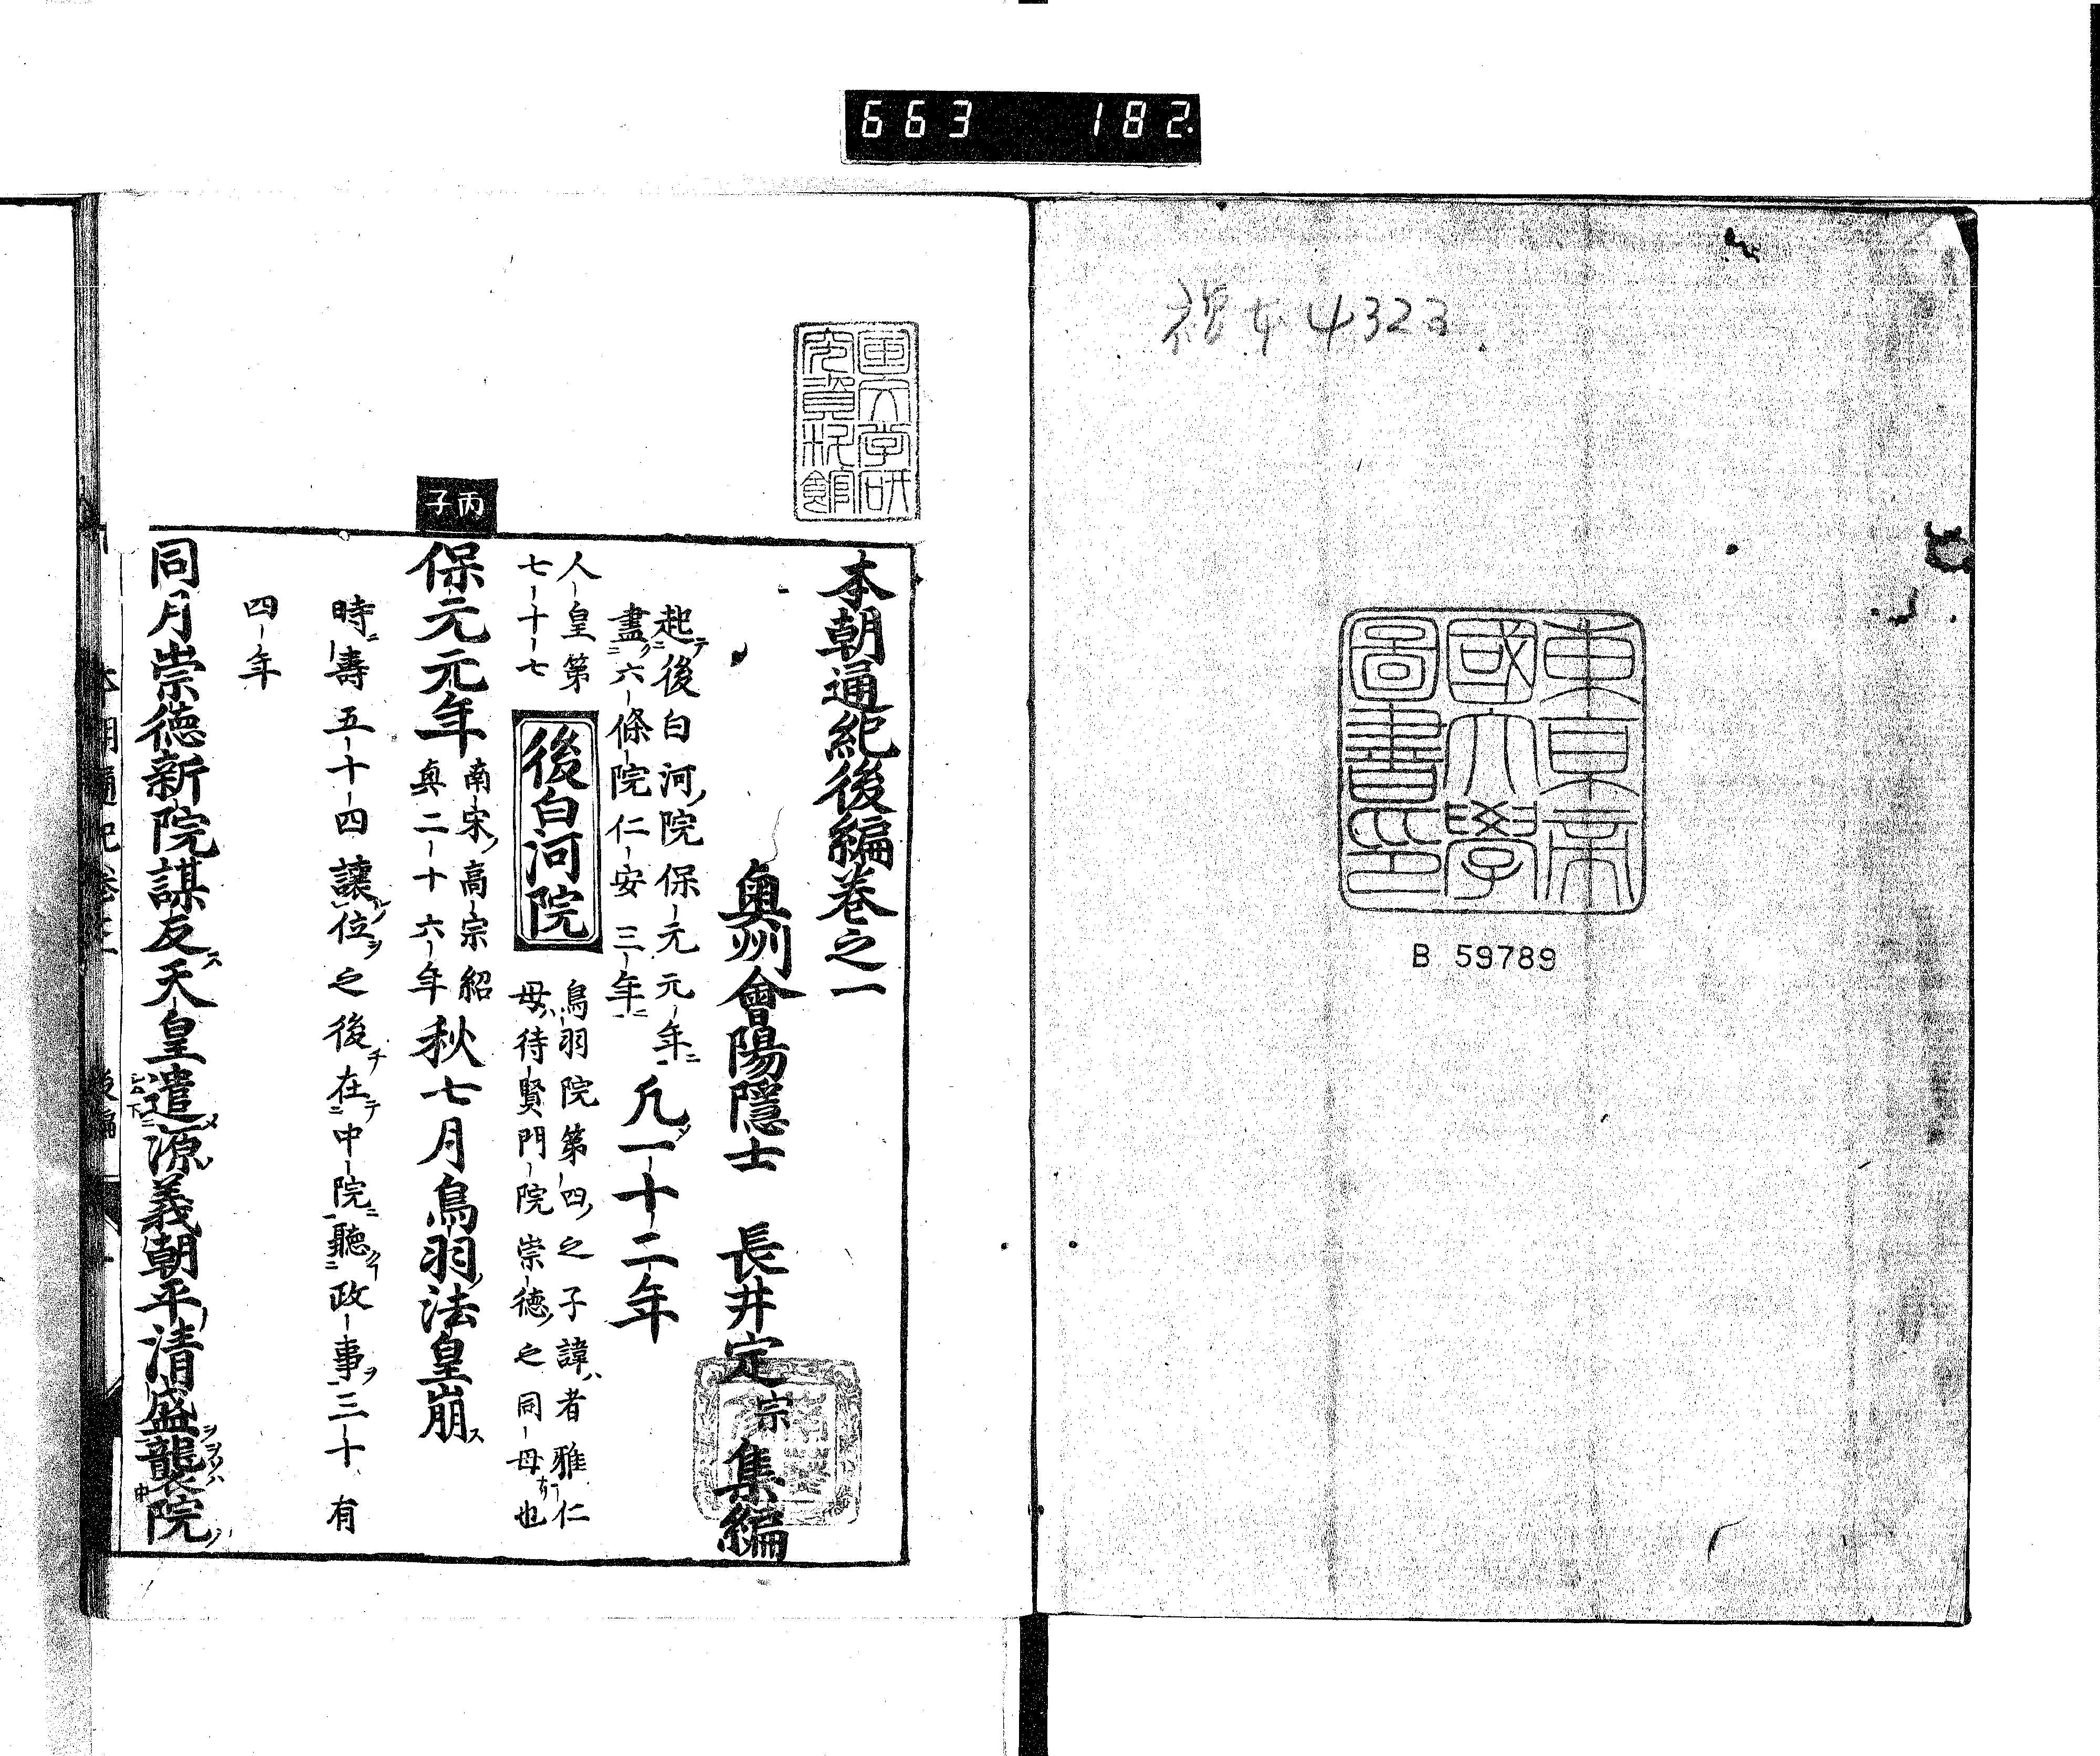 663 182
4323
東京帝
國大學
圖書印
B 59789
国文学研
究資料館
本朝通紀後編卷之一
奥州會陽隱士 長井定宗集編
起テ後白河ノ院保元元年ニ
盡ク六條院仁安三年ニ
凡一十二年
人皇第
七十七
後白河院
鳥羽院第四ノ之子諱ハ者雅仁
母ハ待賢門院崇德ノ之同母也
丙子
保元元年
南宋ノ高宗紹
興二十六年
秋七月鳥羽ノ法皇崩ス
時ニ壽五十四讓位ヲ之後在テ中院ニ聽政事ヲ三十有
四年
同月崇德新院謀反ス天皇遣源ノ義朝平ノ清盛ヲ襲院ノ中